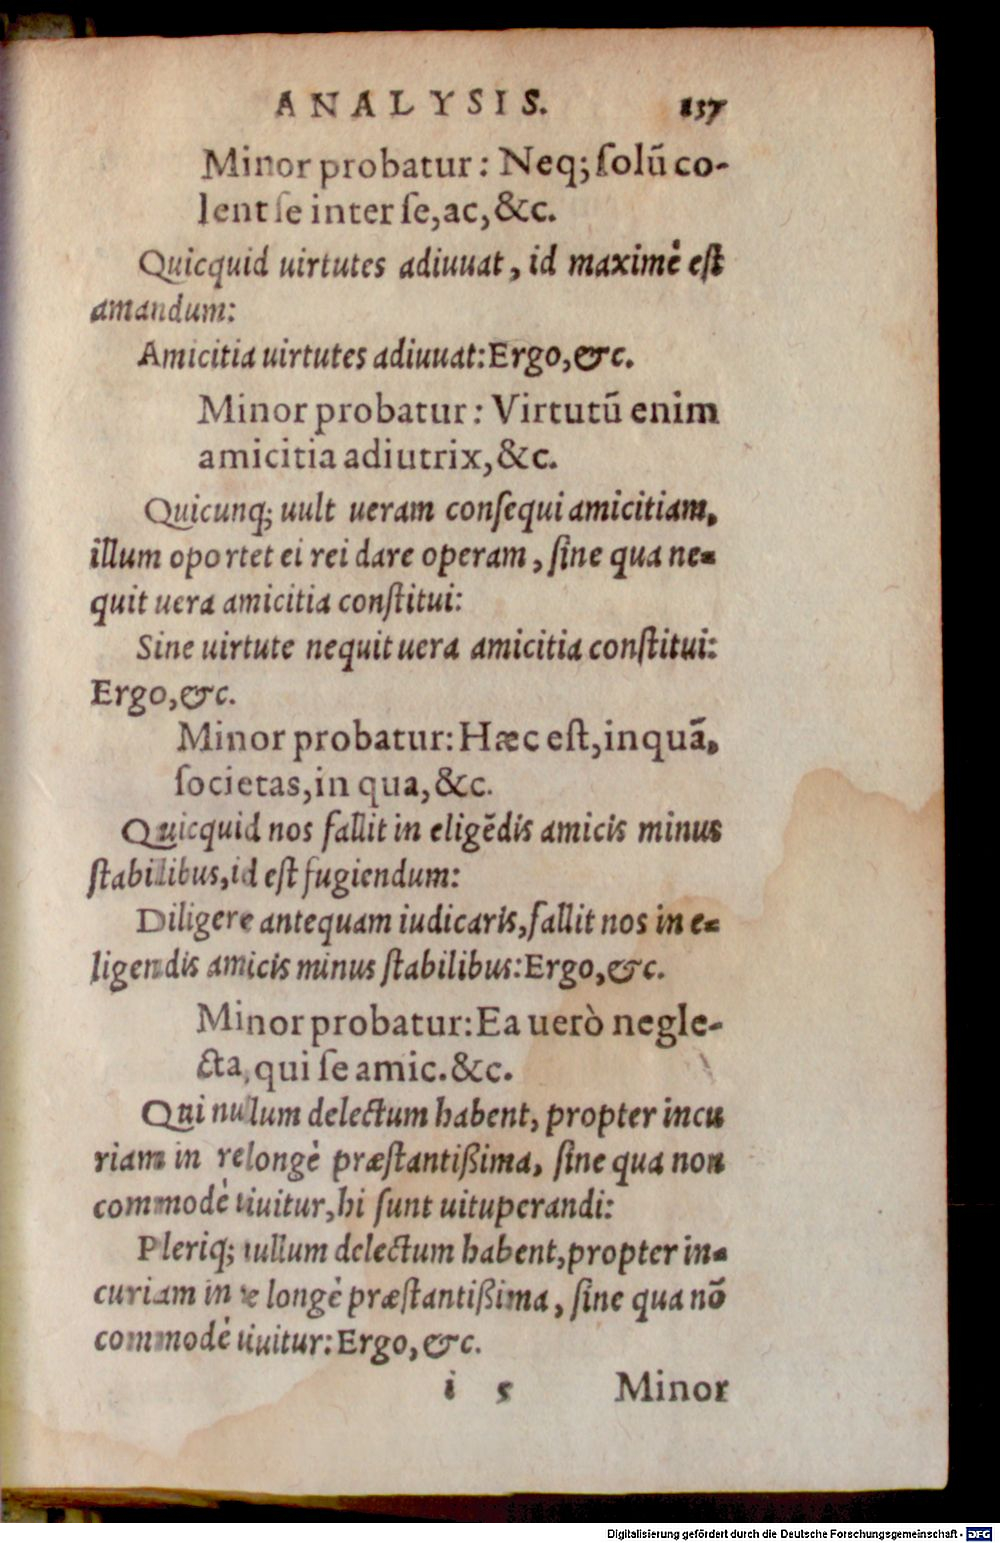 ANALYSIS. 137
Minor probatur: Neq; ſolũ co-
lent ſe inter ſe, ac, &c.
Quicquid uirtutes adiuuat, id maximè eſt
amandum:
Amicitia uirtutes adiuuat: Ergo, &c.
Minor probatur: Virtutũ enim
amicitia adiutrix, &c.
Quicunq; uult ueram conſequi amicitiam,
illum oportet ei rei dare operam, ſine qua ne-
quit uera amicitia conſtitui:
Sine uirtute nequit uera amicitia conſtitui:
Ergo, &c.
Minor probatur: Hæc eſt, inquã,
ſocietas, in qua, &c.
Quicquid nos fallit in eligẽdis amicis minus
ſtabilibus, id eſt fugiendum:
Diligere antequam iudicaris, fallit nos in e-
ligendis amicis minus ſtabilibus: Ergo, &c.
Minor probatur: Ea uerò negle-
cta, qui ſe amic. &c.
Qui nullum delectum habent, propter incu
riam in re longè præſtantißima, ſine qua non
commodè uiuitur, hi ſunt uituperandi:
Pleriq; nullum delectum habent, propter in-
curiam in re longè præſtantißima, ſine qua nõ
commodè uiuitur: Ergo, &c.
i 5 Minor
Digitalisierung gefördert durch die Deutsche Forschungsgemeinschaft - DFG